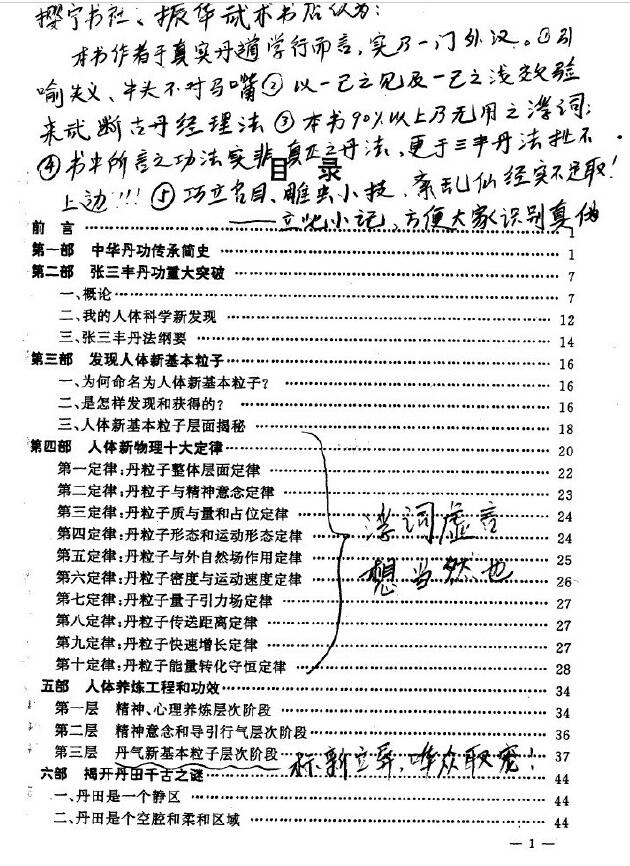 撄宁书社、振华武术书店认为:
本书作者于真实丹道学行而言,实乃一门外汉。①引
喻失义、牛头不对马嘴②以一己之见及一己之浅效验
来武断古丹经理法③本书90%以上乃无用之浮词;
④书中所言之功法实非真正之丹法,更于三丰丹法扯不
上边!!!⑤巧立名目、雕虫小技、紊乱仙经实不足取!
——立此小记,方便大家识别真伪
目录
前 言 1
第一部 中华丹功传承简史 1
第二部 张三丰丹功重大突破 7
一、概论 7
二、我的人体科学新发现 12
三、张三丰丹法纲要 14
第三部 发现人体新基本粒子 16
一、为何命名为人体新基本粒子? 16
二、是怎样发现和获得的? 16
三、人体新基本粒子层面揭秘 18
第四部 人体新物理十大定律 20
第一定律:丹粒子整体层面定律 22
第二定律:丹粒子与精神意念定律 23
第三定律:丹粒子质与量和占位定律 24
第四定律:丹粒子形态和运动形态定律 24
第五定律:丹粒子与外自然场作用定律 25
第六定律:丹粒子密度与运动速度定律 26
第七定律:丹粒子量子引力场定律 27
第八定律:丹粒子传送距离定律 27
第九定律:丹粒子快速增长定律 27
第十定律:丹粒子能量转化守恒定律 28
浮词虚言
想当然也
五部 人体养炼工程和功效 34
第一层 精神、心理养炼层次阶段 34
第二层 精神意念和导引行气层次阶段 36
第三层 丹气新基本粒子层次阶段 37
标新立异,哗众取宠!
六部 揭开丹田千古之谜 44
一、丹田是一个静区 44
二、丹田是个空腔和柔和区域 44
— 1 —